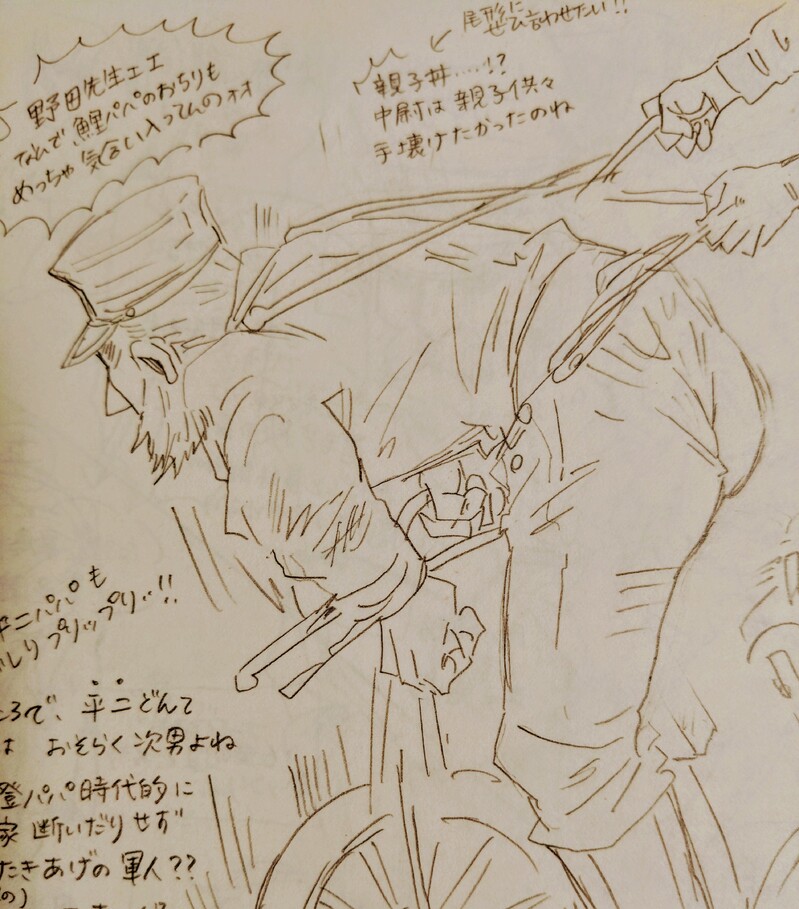 尾形に
ぜひ言わせたい!!
野田先生ェェ
なんで鯉パパのおちりも
めっちゃ気合い入ってんのォォ
親子丼……!?
中尉は親子供々
手壊けたかったのね
平二パパも
しりプリップリッ!!
ろで、平二どんて
は おそらく次男よね
登パパ時代的に
家 断いだりせず
たきあげの軍人??
の)